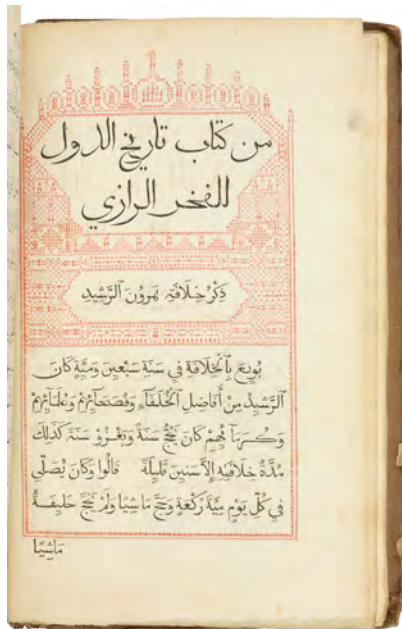 من كتاب تاريخ الدول
للفخر الرازي
ذِكْرُ خِلَافَةِ هٰرُونَ ٱلرَّشِيدِ
بُويِعَ بِٱلْخِلَافَةِ فِي سَنَةِ سَبْعِينَ وَمِيَةٍ كَانَ
ٱلرَّشِيدُ مِنْ أَفَاضِلِ ٱلْخُلَفَآءِ وَفُصَحَآئِهِمْ وَعُلَمَآئِهِمْ
وَكُرَمَآئِهِمْ كَانَ يَحُجُّ سَنَةً وَيَغْزُو سَنَةً كَذٰلِكَ
مُدَّةَ خِلَافَتِهِ إِلَّا سِنِينَ قَلِيلَةً قَالُوا وَكَانَ يُصَلِّي
فِي كُلِّ يَوْمٍ مِيَةَ رَكْعَةٍ وَحَجَّ مَاشِيًا وَلَمْ يَحُجَّ خَلِيفَةٌ
مَاشِيًا